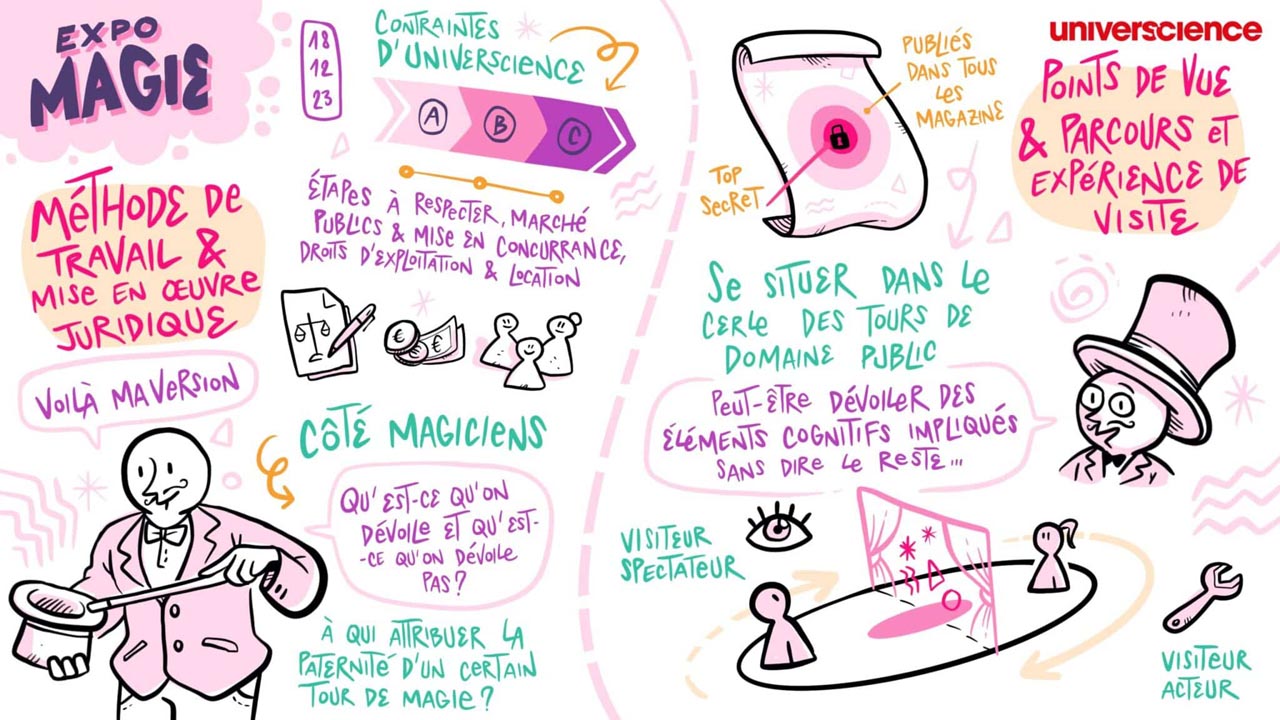 EXPO
MAGIE
18
12
23
CONTRAINTES
D'UNIVERSCIENCE
A
B
C
ÉTAPES À RESPECTER, MARCHÉ
PUBLICS & MISE EN CONCURRANCE,
DROITS D'EXPLOITATION & LOCATION
MÉTHODE DE
TRAVAIL &
MISE EN ŒUVRE
JURIDIQUE
€
€
VOILÀ MA VERSION
CÔTÉ MAGICIENS
QU'EST-CE QU'ON
DÉVOILE ET QU'EST-
-CE QU'ON DÉVOILE
PAS?
À QUI ATTRIBUER LA
PATERNITÉ D'UN CERTAIN
TOUR DE MAGIE?
universcience
POINTS DE VUE
& PARCOURS ET
EXPÉRIENCE DE
VISITE
PUBLIÉS
DANS TOUS
LES
MAGAZINE
TOP
SECRET
SE SITUER DANS LE
CERLE DES TOURS DE
DOMAINE PUBLIC
PEUT-ÊTRE DÉVOILER DES
ÉLÉMENTS COGNITIFS IMPLIQUÉS
SANS DIRE LE RESTE...
VISITEUR
SPECTATEUR
VISITEUR
ACTEUR